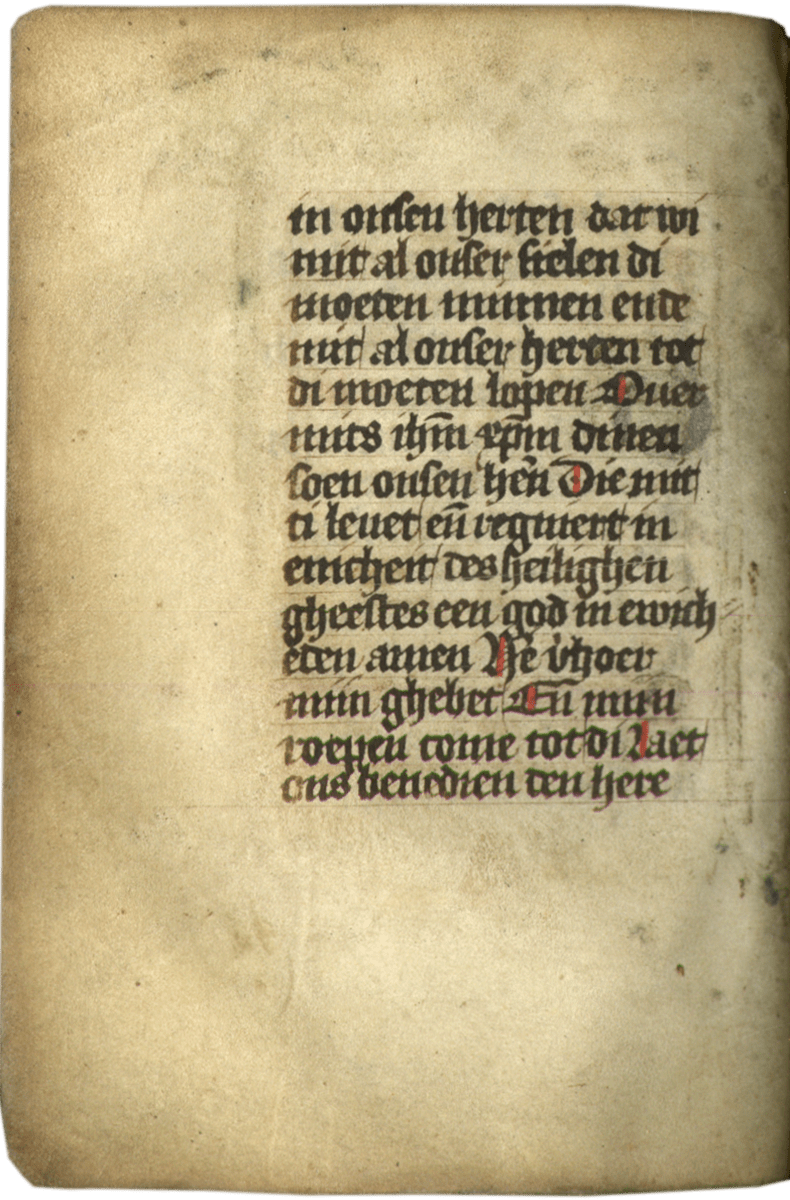 in onsen herten dat wi
mit al onser sielen di
moeten minnen ende
mit al onser herten tot
di moeten lopen Ouer
mits ihm̄ xp̄m dinen
soen onsen hēn Die mit
ti leuet en̄ regniert in
enicheit des heilighen
gheestes een god in ewich
eden amen He v̓hoer
miin ghebet En̄ miin
roepen come tot di Laet
ons benedien den here